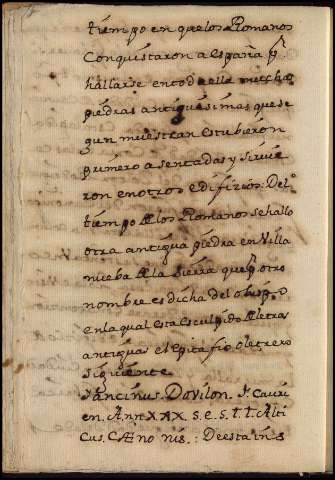 tiempo en que los Romanos
Conquistaron a España p.r
hallarse en toda ella muchas
piedras antiguissimas que se
gun muestran estubieron
primero asentadas y sirvie
ron en otros edifizios: Del
tiempo de los Romanos se hallo
otra antigua piedra en Villa
nueba de la sierra que p.r otro
nombre es dicha del obispo
en la qual esta esculpido de letras
antiguas el epitafio o letrero
siguiente
Sancinus. Dovilon. F. Cauri
en. Ann XXX. S. E. S. T. T. Alti
Cus. Cæno nis. : De esta ins